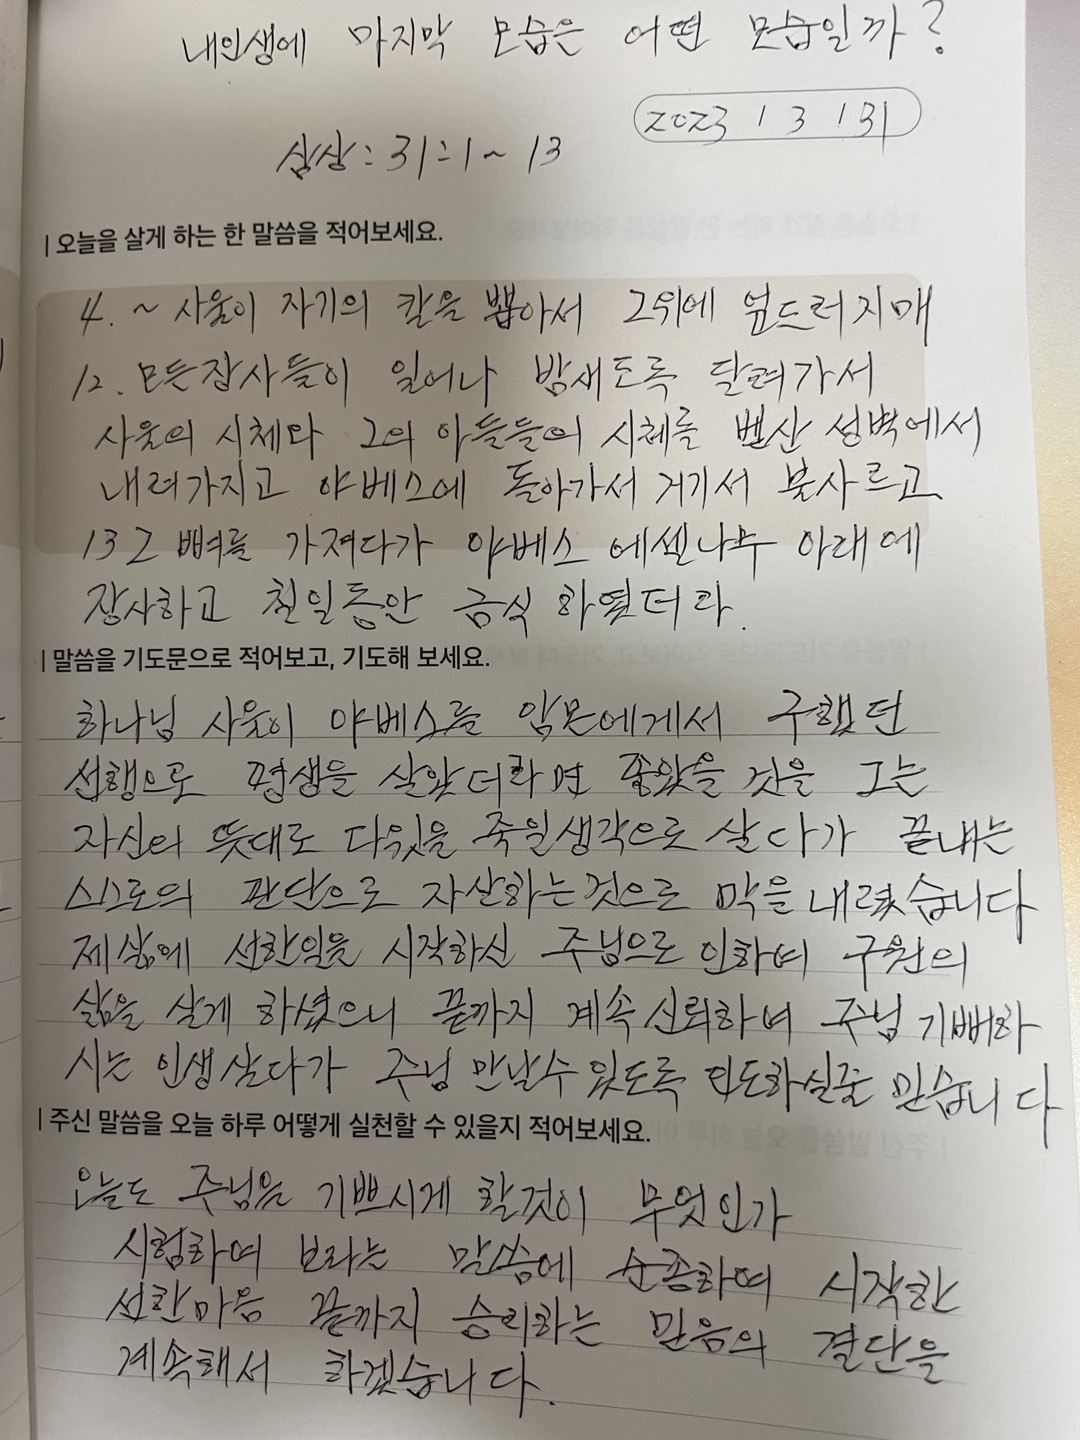 내인생에 마지막 모습은 어떤 모습일까?
2023 1 3 131
삼상: 31:1~13
오늘을 살게 하는 한 말씀을 적어보세요.
4. ~ 사울이 자기의 칼을 뽑아서 그위에 엎드러지매
12. 모든장사들이 일어나 밤새도록 달려가서
사울의 시체와 그의 아들들의 시체를 벧산 성벽에서
내려가지고 야베스에 돌아가서 거기서 불사르고
13 그 뼈를 가져다가 야베스 에셀나무 아래에
장사하고 칠일동안 금식 하였더라.
말씀을 기도문으로 적어보고, 기도해 보세요.
하나님 사울이 야베스를 암몬에게서 구했던
선행으로 평생을 살았더라면 좋았을 것을 그는
자신의 뜻대로 다윗을 죽일생각으로 살다가 끝내는
스스로의 판단으로 자살하는것으로 막을 내렸습니다
제삶에 선한일을 시작하신 주님으로 인하여 구원의
삶을 살게 하셨으니 끝까지 계속 신뢰하며 주님 기뻐하
시는 인생살다가 주님 만날수 있도록 인도하실줄 믿습니다
주신 말씀을 오늘 하루 어떻게 실천할 수 있을지 적어보세요.
오늘도 주님을 기쁘시게 할것이 무엇인가
시험하여 보라는 말씀에 순종하며 시작한
선한마음 끝까지 승리하는 믿음의 결단을
계속해서 하겠습니다.